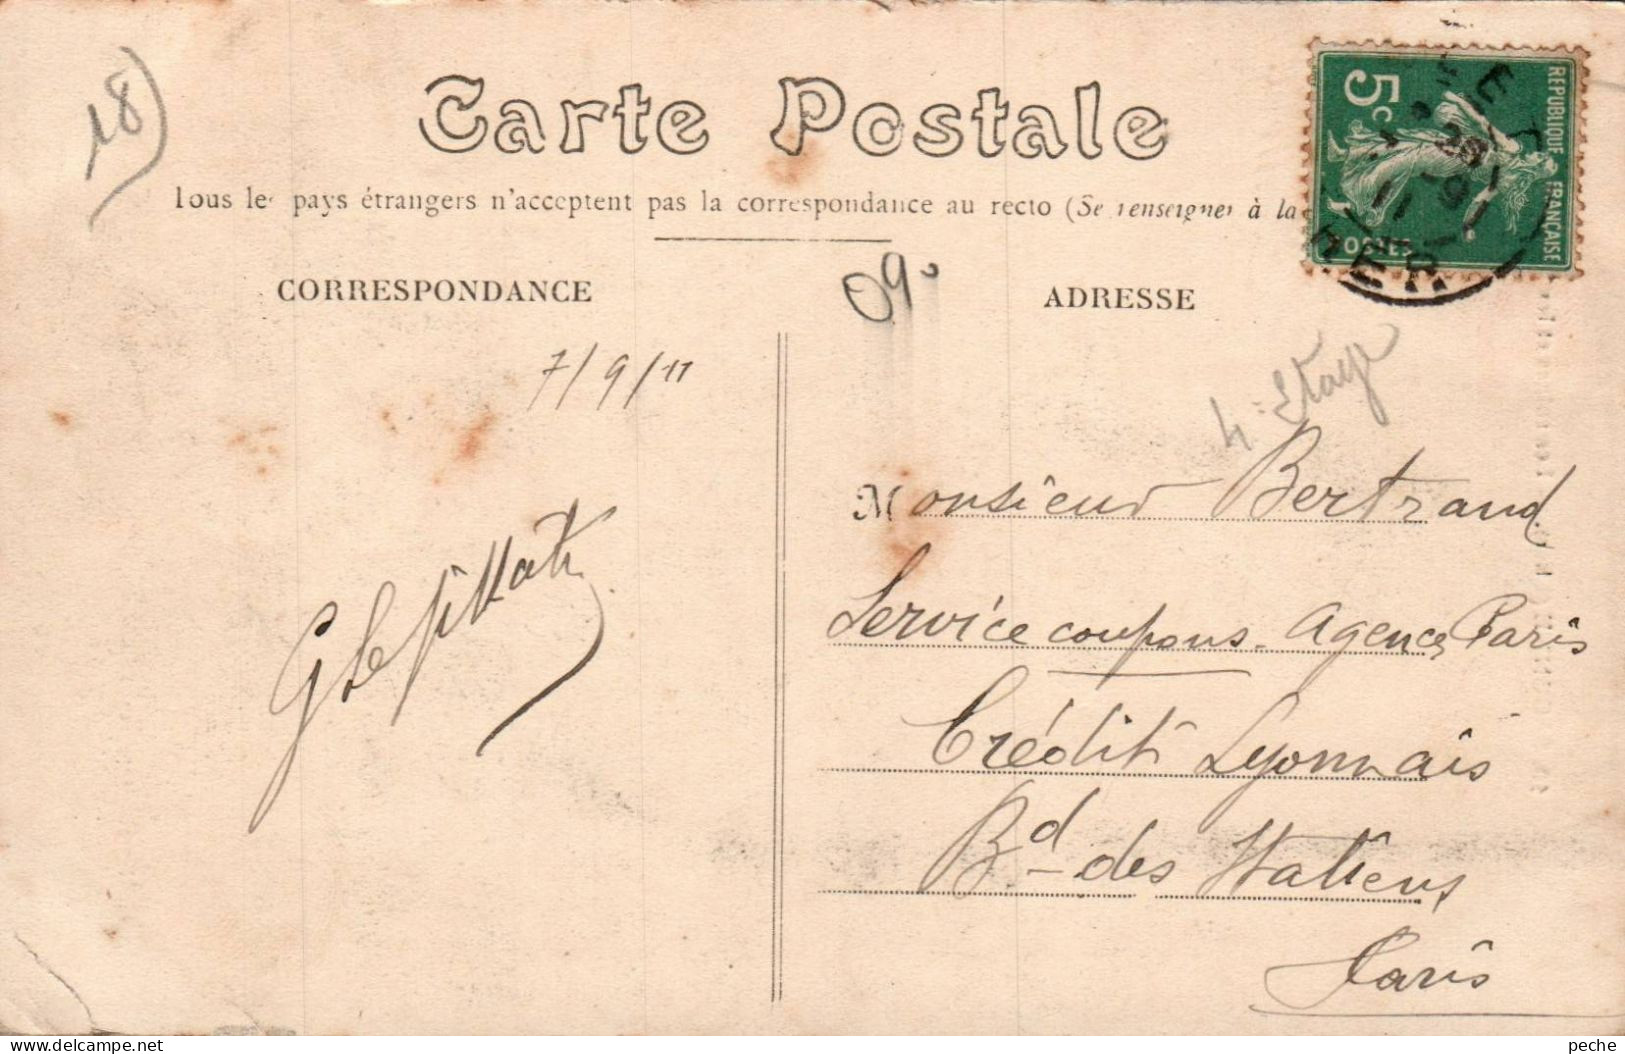 18)
Carte Postale
Tous les pays étrangers n'acceptent pas la correspondance au recto (Se renseigner à la
REPUBLIQUE FRANÇAISE
5c
POSTES
CORRESPONDANCE
09
ADRESSE
7/9/11
4e Etage
Monsieur Bertrand
Service coupons. Agence Paris
Crédit Lyonnais
Bd des Italiens
Paris
peche
Delcampe.net